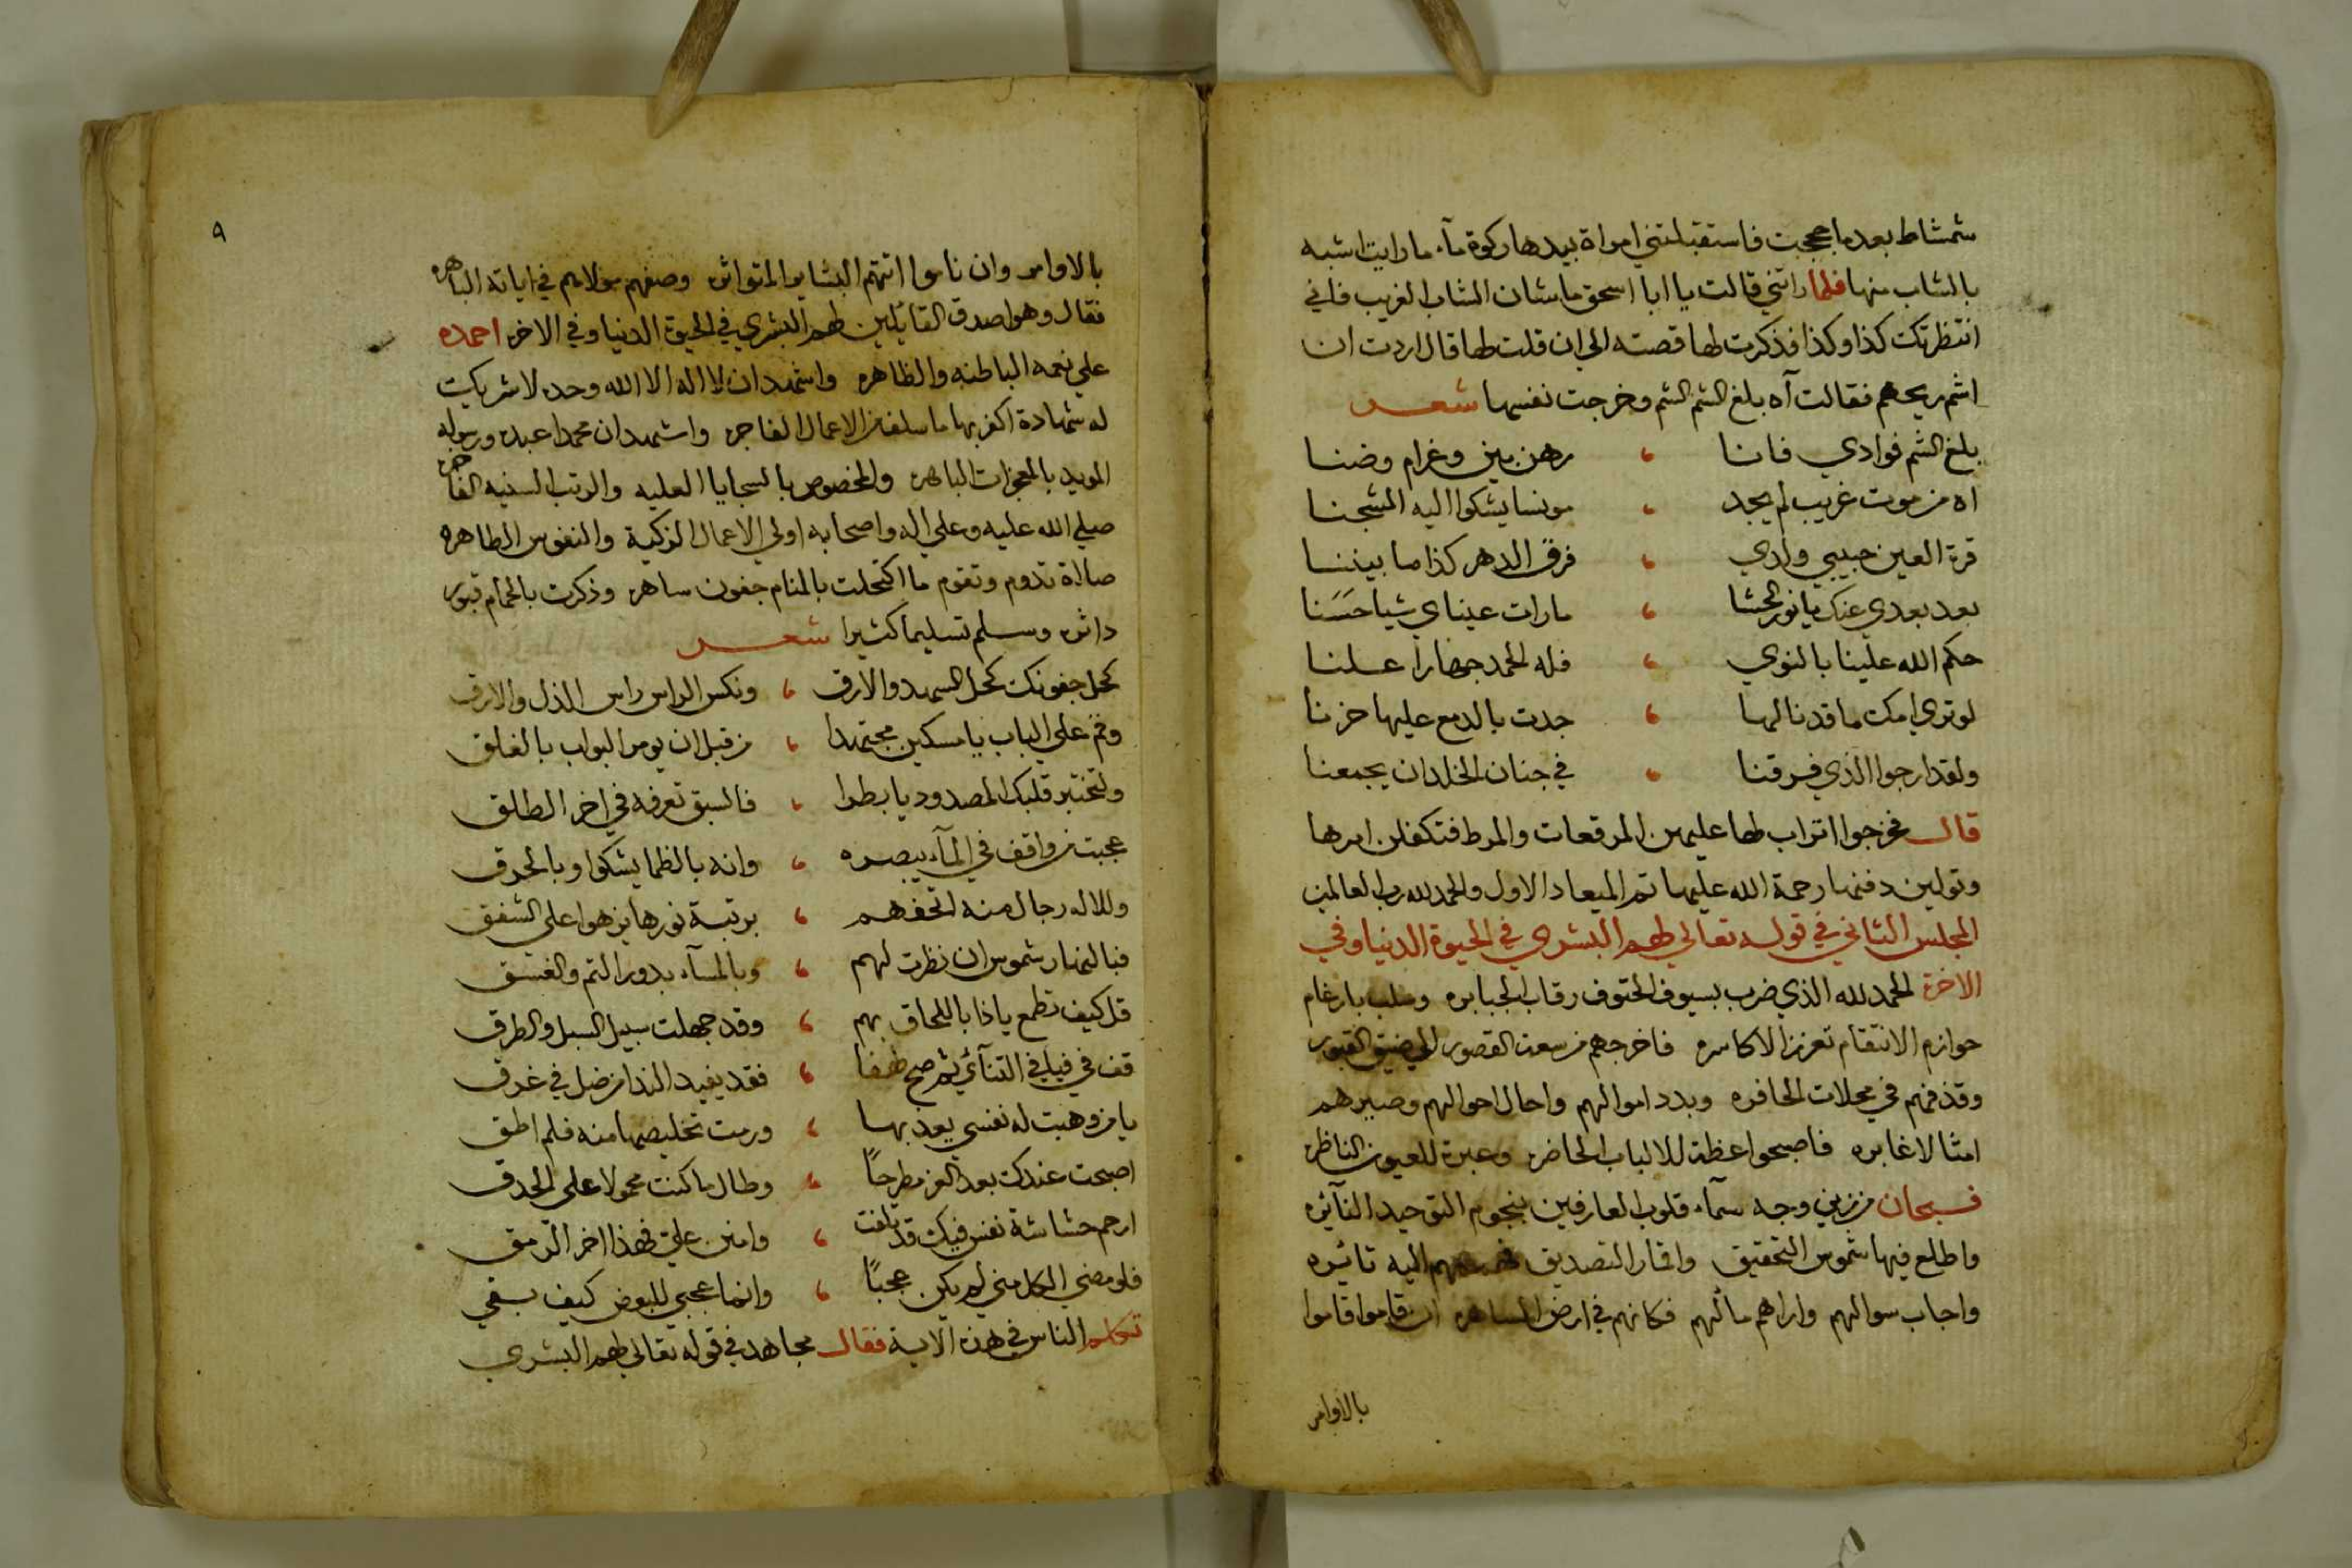 شمشاط بعد ما حججت فاستقبلتني امراة بيدها ركوة مآء ما رايت اشبه
بالشاب منها فلما راتني قالت يا ابا اسحق ما شان الشاب الغريب فاني
انتظرتك كذا وكذا فذكرت لها قصته الي ان قلت لها قال اردت ان
اشم ريحهم فقالت آه بلغ الشم الشم وخرجت نفسها شعر
بلغ الشم فوادي فانا ، رهن بين وغرام وضنا
اه من موت غريب لم يجد ، مونسا يشكوا اليه الشجنا
قرة العين حبيبي ولدي ، فرق الدهر كذا ما بيننا
بعد بعدي عنك يا نور الحشا ، ما رات عيناي شيا حسنا
حكم الله علينا بالنوي ، فله الحمد جهارا علنا
لو تري امك ما قد نالها ، جدت بالدمع عليها حزنا
ولقد ارجوا الذي فرقنا ، في جنان الخلد ان يجمعنا
قال فخرجوا اتراب لها عليهن المرقعات والمرط فتكفلن امرها
وتولين دفنها رحمة الله عليها تم الميعاد الاول والحمد لله رب العالمين
المجلس الثاني في قوله تعالي لهم البشري في الحيوة الدنيا وفي
الاخرة الحمد لله الذي ضرب بسيوف الحتوف رقاب الجبابره وسلب بارغام
حوازم الانتقام تعزز الاكاسره فاخرجهم من سعة القصور الي ضيق القبور
وقذفهم في محلات الحافره وبدد اموالهم واحال احوالهم وصيرهم
امثالا غابره فاصبحوا عظة للالباب الحاضره وعبرة للعيون الناظره
فسبحان من زين وجه سمآء قلوب العارفين بنجوم التوحيد النآئره
واطلع فيها شموس التحقيق واقمار التصديق اليه تائبره
واجاب سوالهم واراهم مآلهم فكانهم في ارض الساهره ان قاموا قاموا
بالاوامر
٩
بالاوامر وان ناموا اتتهم البشاير المتواتره وصفهم مولاهم في اياته الباهره
فقال وهو اصدق القائلين لهم البشري في الحيوة الدنيا وفي الاخره احمده
علي نعمه الباطنه والظاهره واشهد ان لا اله الا الله وحده لا شريك
له شهادة اكفر بها ما سلف من الاعمال الفاجره واشهد ان محمدا عبده ورسوله
المويد بالمعجزات الباهره والمخصوص بالسجايا العليه والرتب السنيه الفاخره
صلي الله عليه وعلي اله واصحابه اولي الاعمال الزكية والنفوس الطاهره
صلاة تدوم وتقوم ما اكتحلت بالمنام جفون ساهره وذكرت بالحمام قبور
داثره وسلم تسليما كثيرا شعر
كحل جفونك كحل السهد والارق ، ونكس الراس راس الذل والارق
وقم علي الباب يا مسكين مجتهدا ، من قبل ان يومر البواب بالغلق
ولتختبر قلبك المصدود يا بطرا ، فالسبق تعرفه في اخر الطلق
عجبت من واقف في المآء يبصره ، وانه بالظما يشكوا وبالحرق
وللاله رجال منه اتحفهم ، برتبة نورها يزهوا علي الشفق
فبالنهار شموس ان نظرت لهم ، وبالمسآء بدور التم والغسق
قل كيف تطمع يا ذا باللحاق بهم ، وقد جهلت سبيل السبل والطرق
قف في فيافي التنآئي ثم صح لهفا ، فقد يفيد الندا من ضل في غرق
يا من وهبت له نفسي يعذبها ، ورمت تخليصها منه فلم اطق
اصبحت عندك بعد العز مطرحًا ، وطال ما كنت محمولا علي الحدق
ارحم حشاشة نفس فيك قد تلفت ، وامنن علي فهذا اخر الرمق
فلو مضي الكل مني لم يكن عجبًا ، وانما عجبي للبعض كيف بقي
تكلم الناس في هذه الاية فقال مجاهد في قوله تعالي لهم البشري